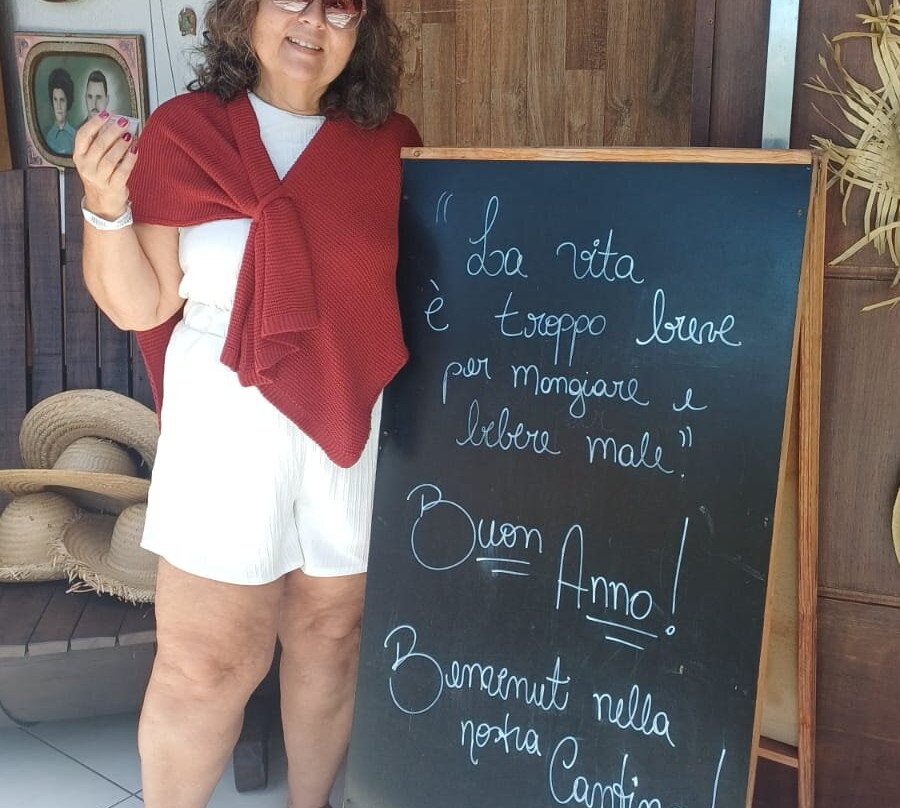 "La vita
è troppo breve
per mangiare e
bebere male."
Buon
Anno!
Benvenut nella
nostra